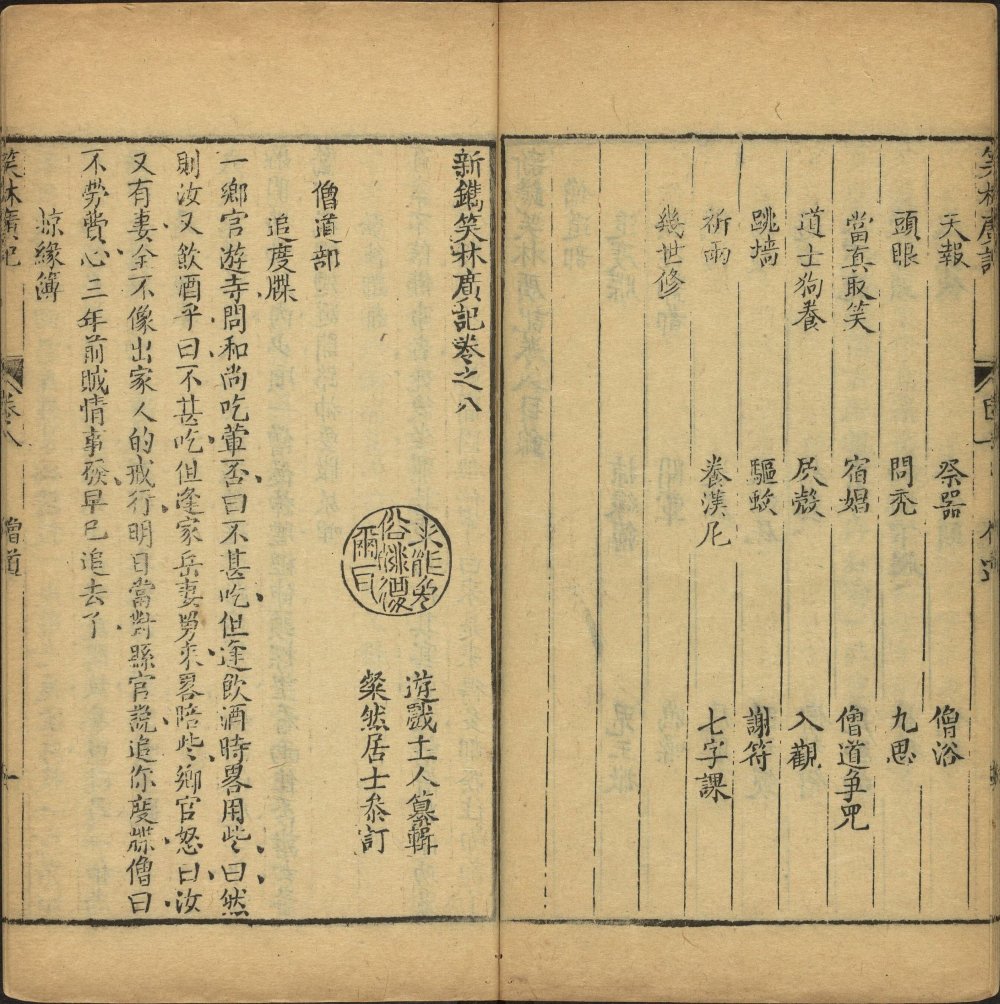 笑林廣記
天報 祭器 僧浴
頭眼 問禿 九思
當真取笑 宿娼 僧道爭兕
道士狗養 灰殼 入觀
跳墙 驅蚊 謝符
祈雨 養漢尼 七字課
幾世修
新鐫笑林廣記卷之八
遊戲主人纂輯
粲然居士叅訂
僧道部
追度牒
一鄉官遊寺問和尚吃葷否曰不甚吃但逢飲酒時畧用些曰然
則汝又飲酒乎曰不甚吃但逢家岳妻舅來畧陪些鄉官怒曰汝
又有妻全不像出家人的戒行明日當對縣官說追你度牒僧曰
不勞費心三年前賊情事發早已追去了
掠緣簿
笑林廣記 卷八 僧道